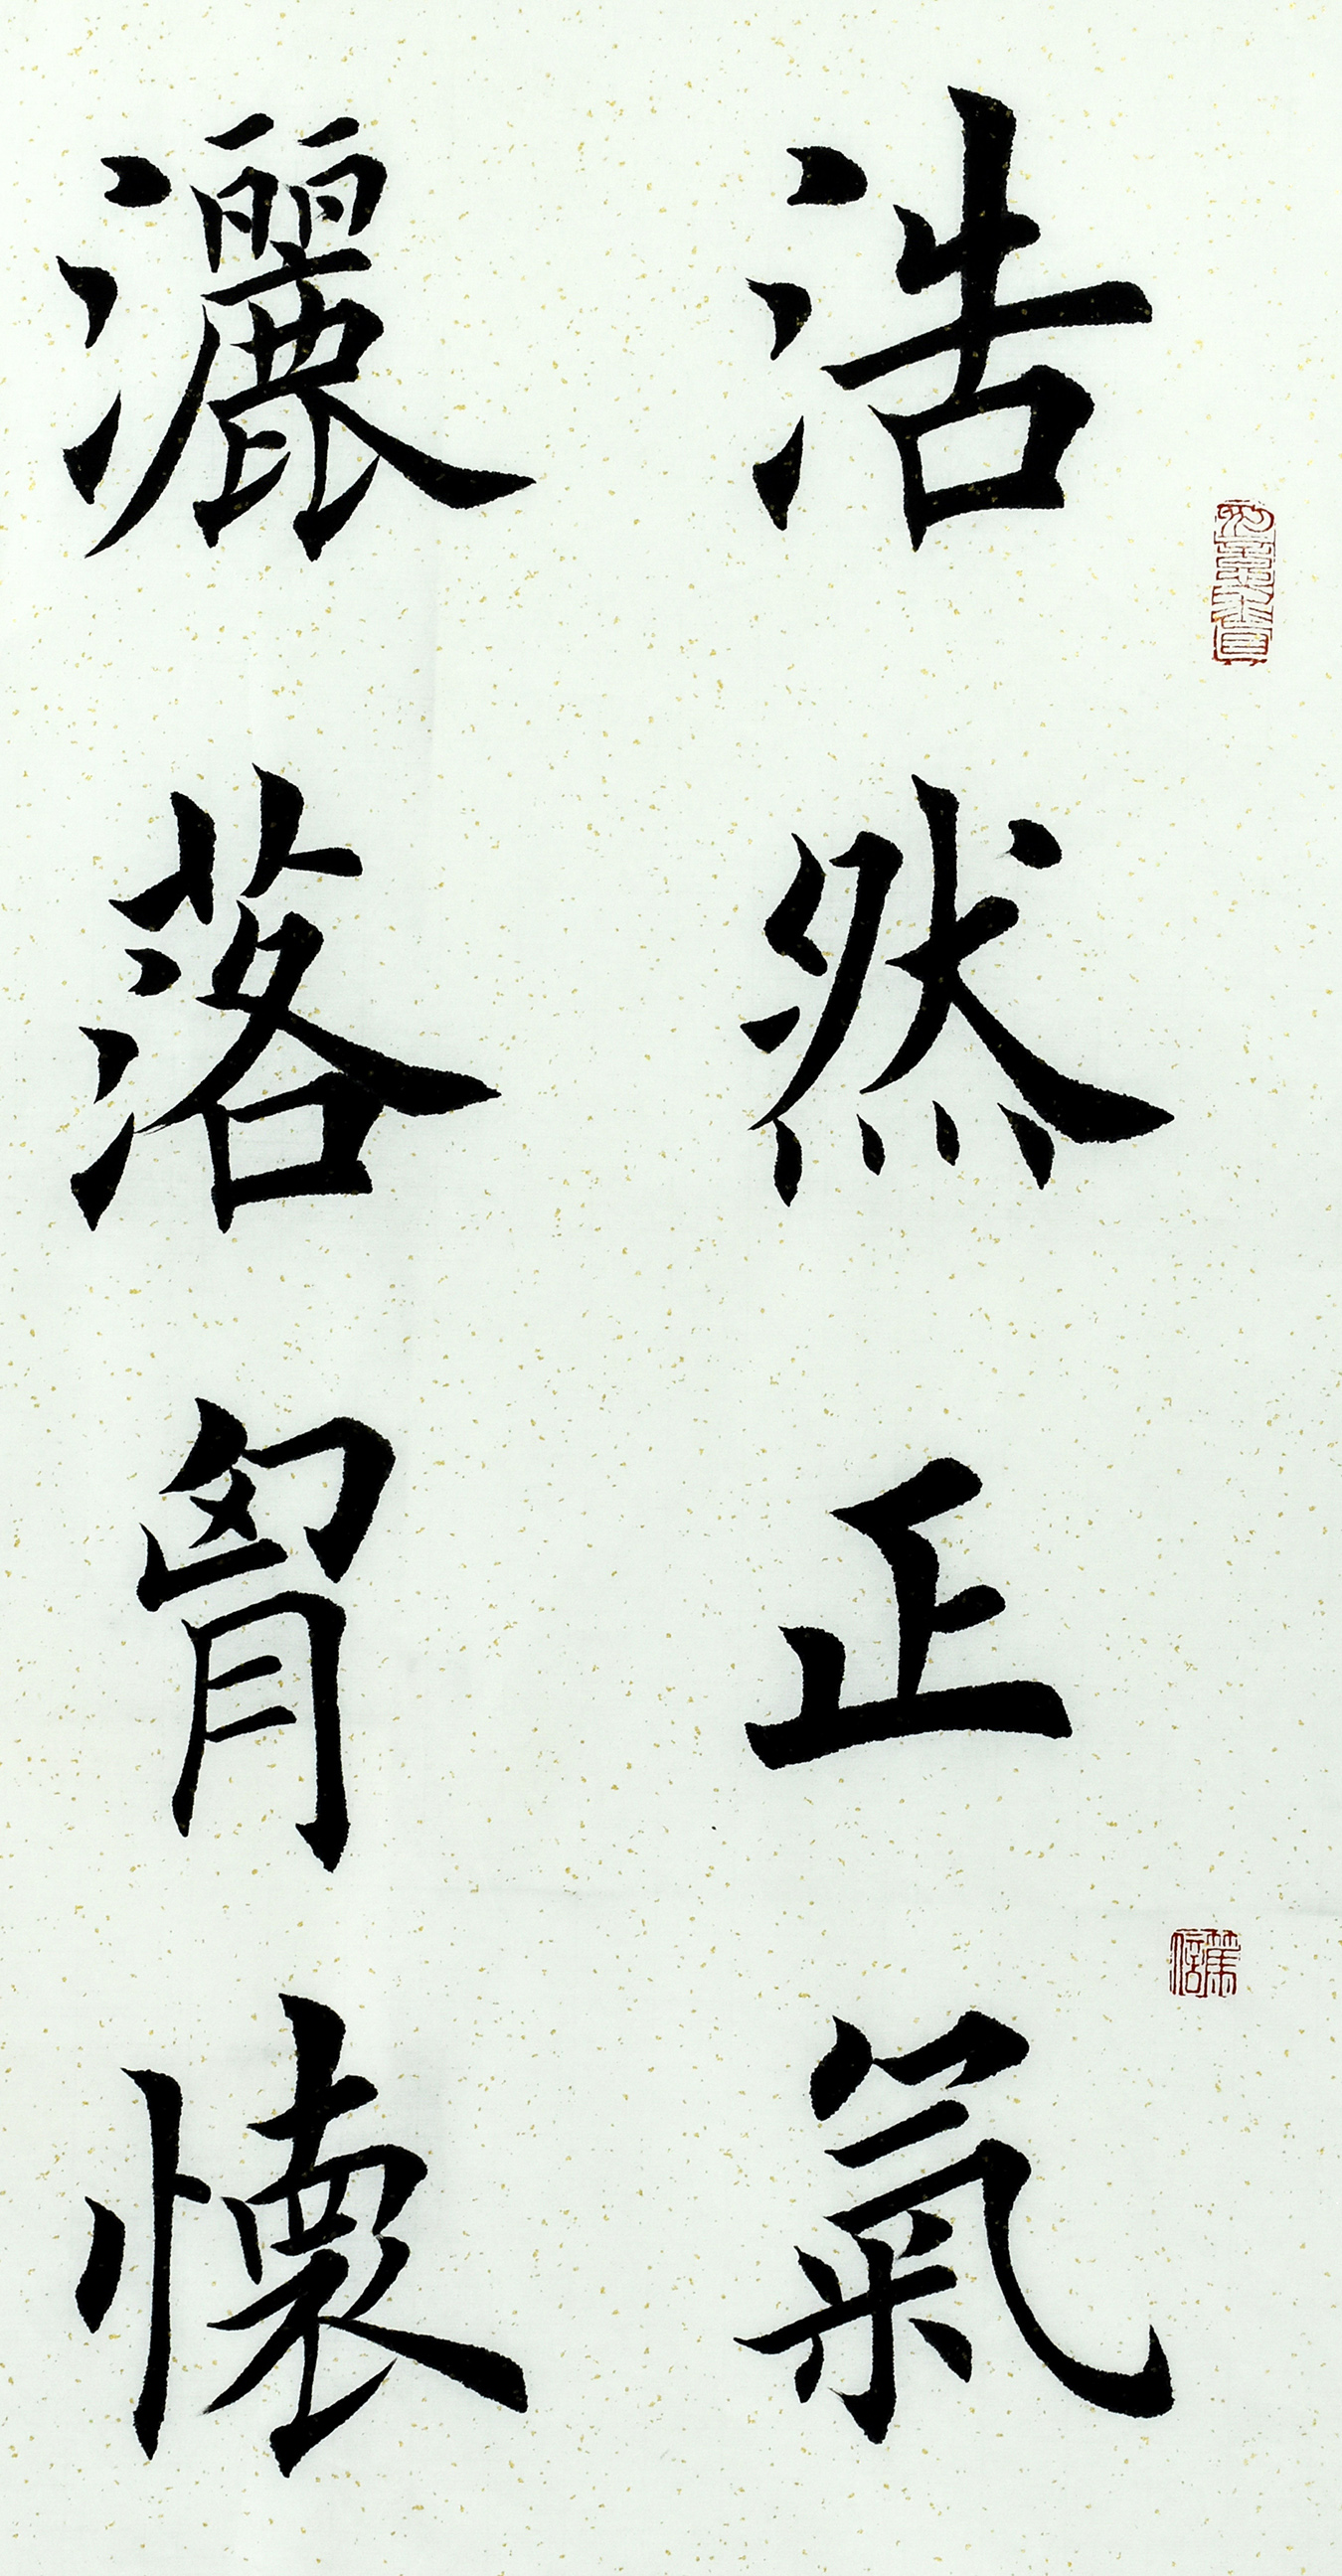 浩然正氣
灑落胷懷